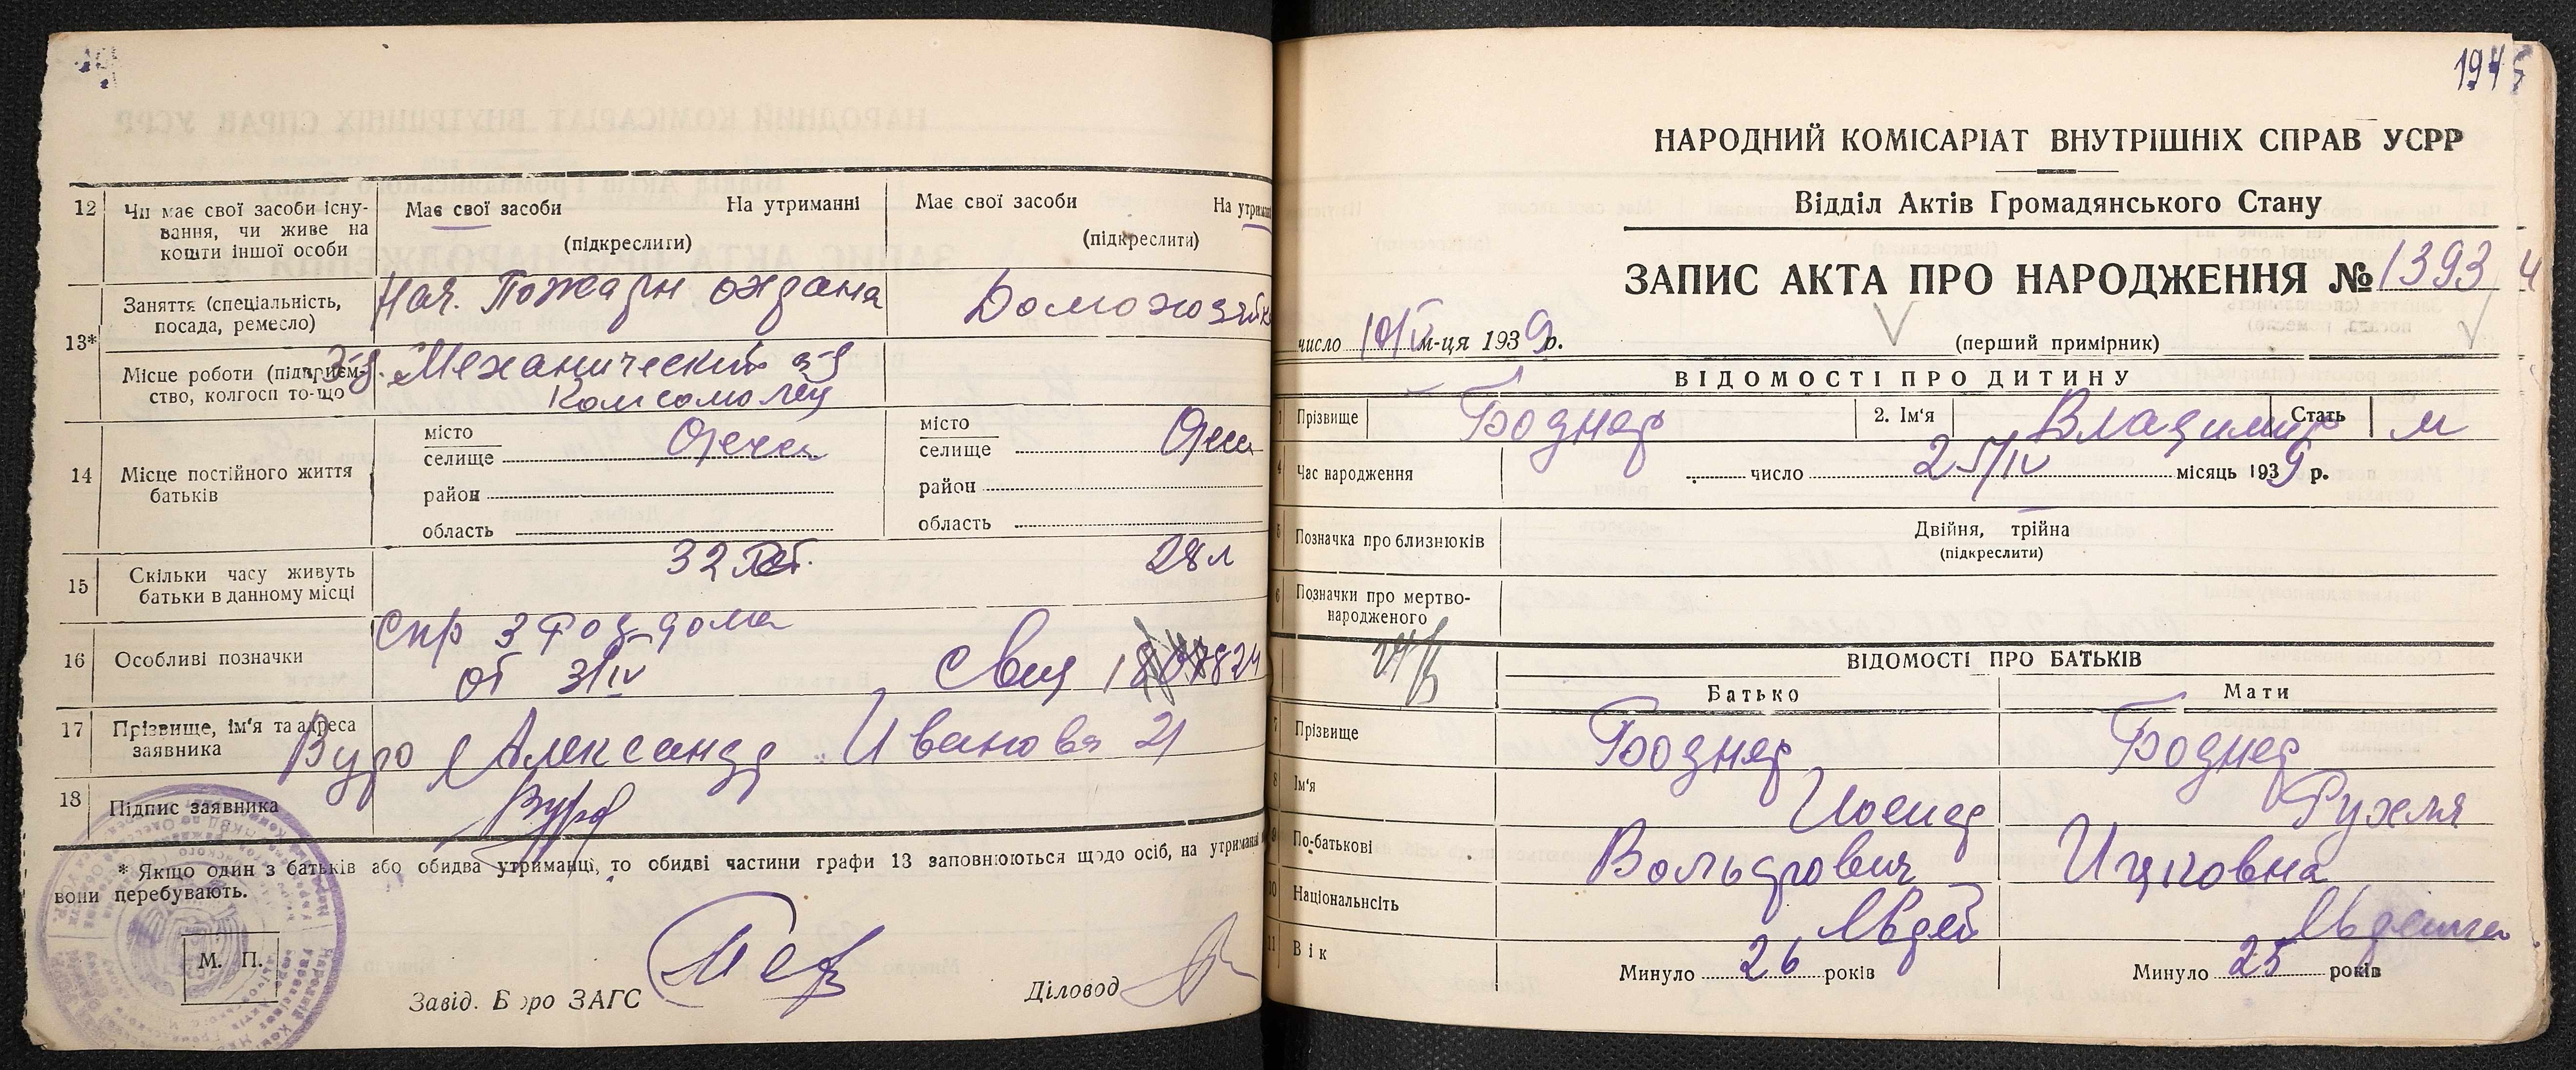 12 Чи має свої засоби існування, чи живе на кошти іншої особи
Має свої засоби На утриманні
(підкреслити)
Має свої засоби На утрим
(підкреслити)
13*
Заняття (спеціальність, посада, ремесло)
Нач. Пожарн охрана
Домохозяйка
Місце роботи (підприємство, колгосп то-що
Механический з-д
Комсомолец
14 Місце постійного життя батьків
місто
селище
район
область
місто
селище
район
область
15 Скільки часу живуть батьки в данному місці
32
28 л
16 Особливі позначки
Спр 3 Род-дома
от 3/IV
17 Прізвище, ім'я та адреса заявника
Вуро Александр Иванова 21
18 Підпис заявника
* Якщо один з батьків або обидва утриманці, то обидві частини графи 13 заповнюються щодо осіб, на утриманні
вони перебувають.
М. П.
Завід. Бюро ЗАГС
Діловод
194
НАРОДНИЙ КОМІСАРІАТ ВНУТРІШНІХ СПРАВ УСРР
Відділ Актів Громадянського Стану
ЗАПИС АКТА ПРО НАРОДЖЕННЯ № 1393
число м-ця 1939 р.
(перший примірник)
ВІДОМОСТІ ПРО ДИТИНУ
1 Прізвище Боднер 2. Ім'я Владимир Стать м
4 Час народження число 25/IV місяць 1939 р.
5 Позначка про близнюків Двійня, трійна
(підкреслити)
6 Позначки про мертвонародженого
ВІДОМОСТІ ПРО БАТЬКІВ
Батько Мати
7 Прізвище Боднер Боднер
8 Ім'я Иосиф Рухля
9 По-батькові Вольфович Ицковна
10 Національність Еврей Еврейка
11 Вік Минуло 26 років Минуло 25 років